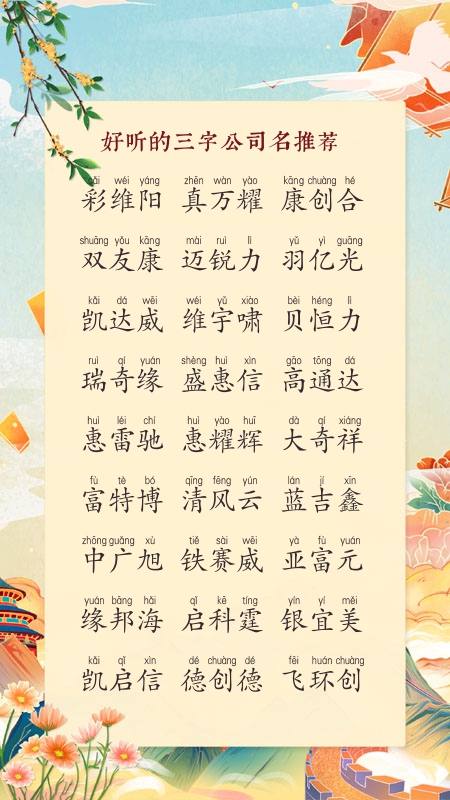 好听的三字公司名推荐
cǎi wéi yáng zhēn wàn yào kāng chuàng hé
彩维阳 真万耀 康创合
shuāng yǒu kāng mài ruì lì yǔ yì guāng
双友康 迈锐力 羽亿光
kǎi dá wēi wéi yǔ xiào bèi héng lì
凯达威 维宇啸 贝恒力
ruì qí yuán shèng huì xìn gāo tōng dá
瑞奇缘 盛惠信 高通达
huì léi chí huì yào huī dà qí xiáng
惠雷驰 惠耀辉 大奇祥
fù tè bó qīng fēng yún lán jí xīn
富特博 清风云 蓝吉鑫
zhōng guǎng xù tiě sài wēi yà fù yuán
中广旭 铁赛威 亚富元
yuán bāng hǎi qǐ kē tíng yín yí měi
缘邦海 启科霆 银宜美
kǎi qǐ xìn dé chuàng dé fēi huán chuàng
凯启信 德创德 飞环创